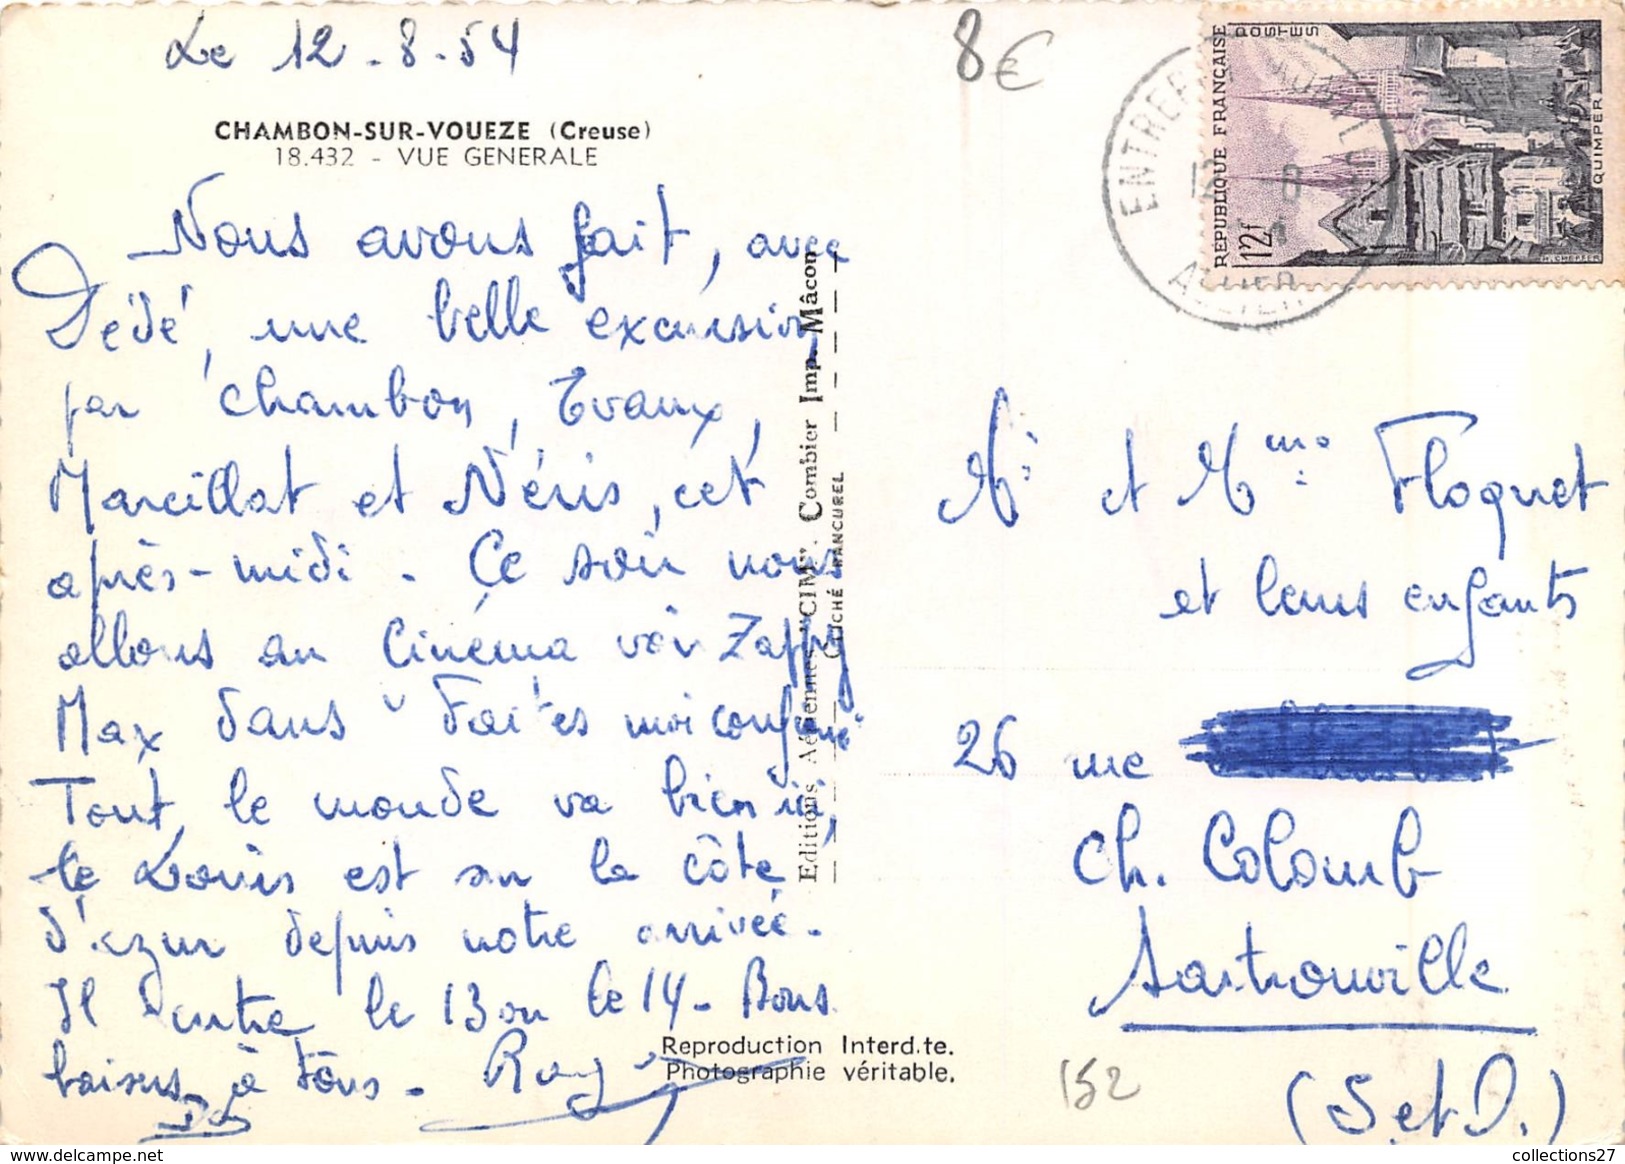 Le 12-8-54
8€
CHAMBON-SUR-VOUEZE (Creuse)
18.432 - VUE GENERALE
Nous avons fait, avec
Dédé, une belle excursion
par Chambon, Evaux,
Marcillat et Néris, cet
après-midi. Ce soir nous
allons au Cinéma voir Zappy
Max dans "Faites moi confiance"
Tout le monde va bien ici,
le Louis est sur la côte
d'azur depuis notre arrivée.
Il rentre le 13 ou le 14. Bons
baisers à tous.
Editions Aériennes "CIM". Combier Imp. Mâcon
CLICHÉ RANCUREL
Reproduction Interd.te.
Photographie véritable.
RÉPUBLIQUE FRANÇAISE
POSTES
12f
QUIMPER
ALLIER
Mr et Mme Floquet
et leurs enfants
26 rue
Ch. Colomb
Sartrouville
(S et O.)
152
collections27